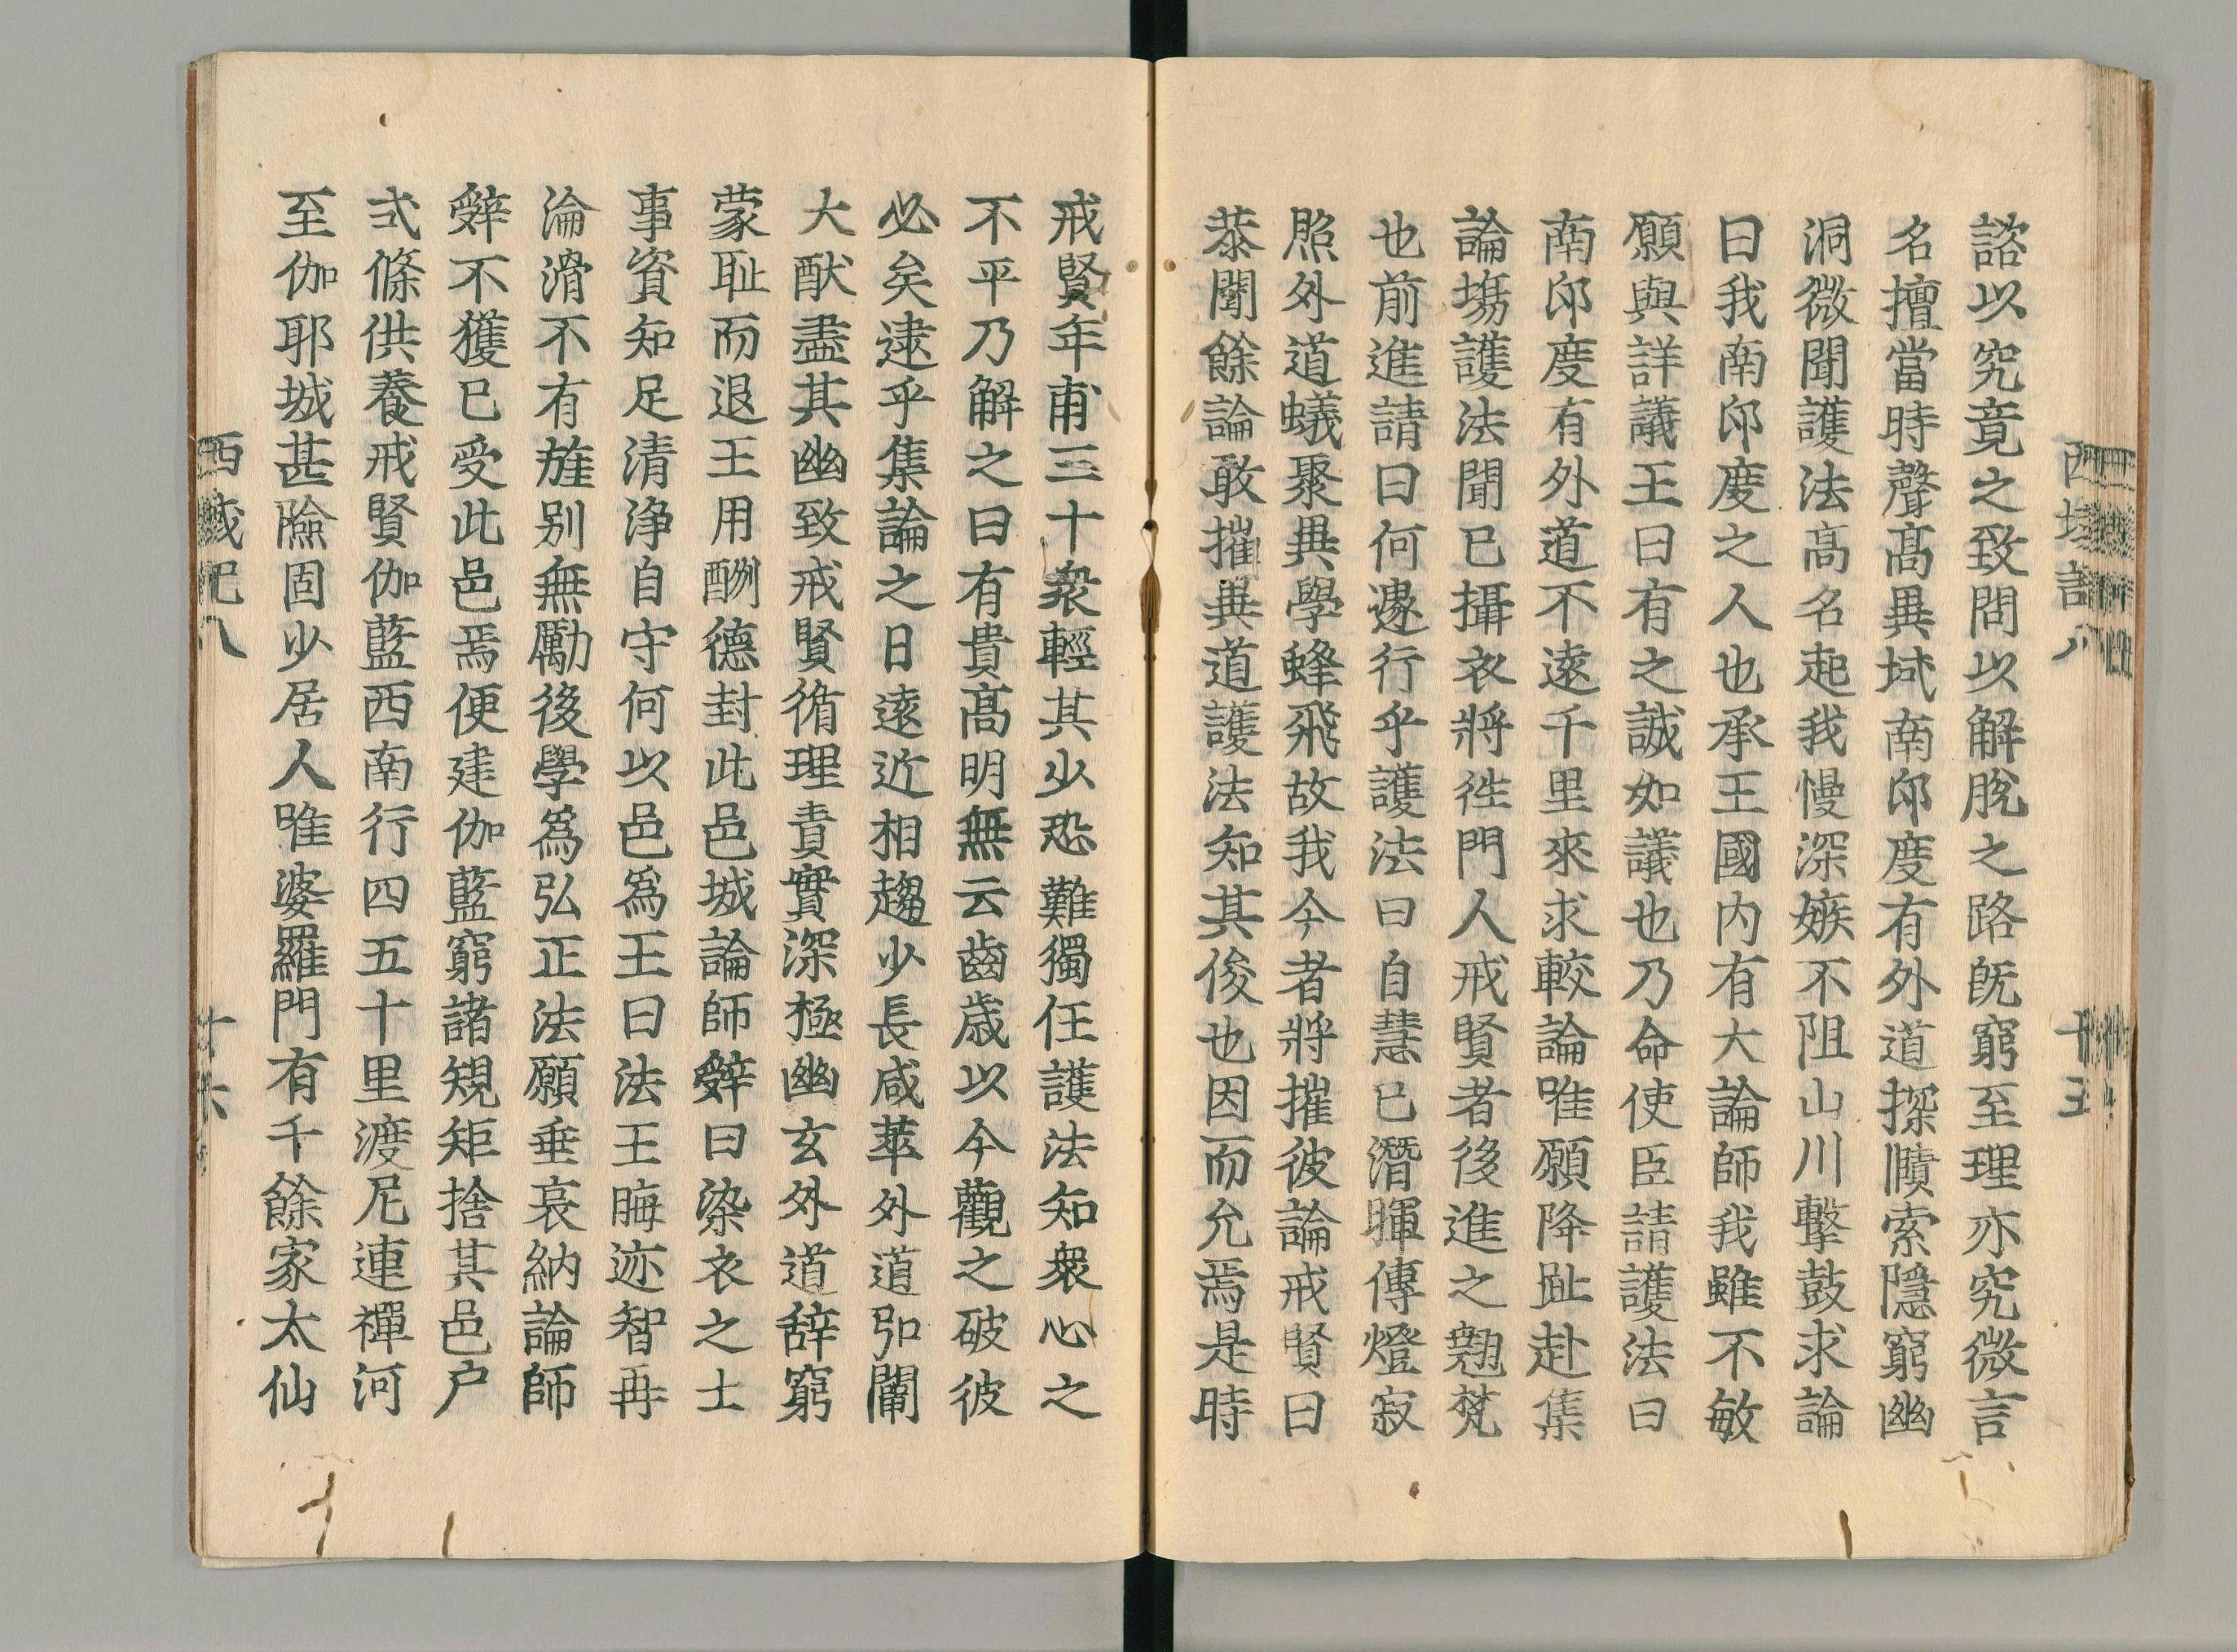 西域記八 十五
諮以究竟之致問以解脫之路旣窮至理亦究微言
名擅當時聲髙異域南印度有外道探賾索隱窮幽
洞微聞護法髙名起我慢深嫉不阻山川擊鼓求論
曰我南印度之人也承王國内有大論師我雖不敏
願與詳議王曰有之誠如議也乃命使臣請護法曰
南印度有外道不遠千里來求較論唯願降趾赴集
論塲護法聞已攝衣將徃門人戒賢者後進之翹楚
也前進請曰何遽行乎護法曰自慧日潛暉傳燈寂
照外道蟻聚異學蜂飛故我今者將摧彼論戒賢曰
恭聞餘論敢摧異道護法知其俊也因而允焉是時
戒賢年甫三十衆輕其少恐難獨任護法知衆心之
不平乃解之曰有貴髙明無云齒歲以今觀之破彼
必矣逮乎集論之日遠近相趨少長咸萃外道弘闡
大猷盡其幽致戒賢循理責實深極幽玄外道辞窮
蒙耻而退王用酬德封此邑城論師辤曰染衣之士
事資知足清淨自守何以邑爲王曰法王晦迹智舟
淪滑不有旌别無勵後學爲弘正法願垂哀納論師
辤不獲已受此邑焉便建伽藍窮諸規矩捨其邑户
式條供養戒賢伽藍西南行四五十里渡尼連禪河
至伽耶城甚險固少居人唯婆羅門有千餘家大仙
西域記八 十六